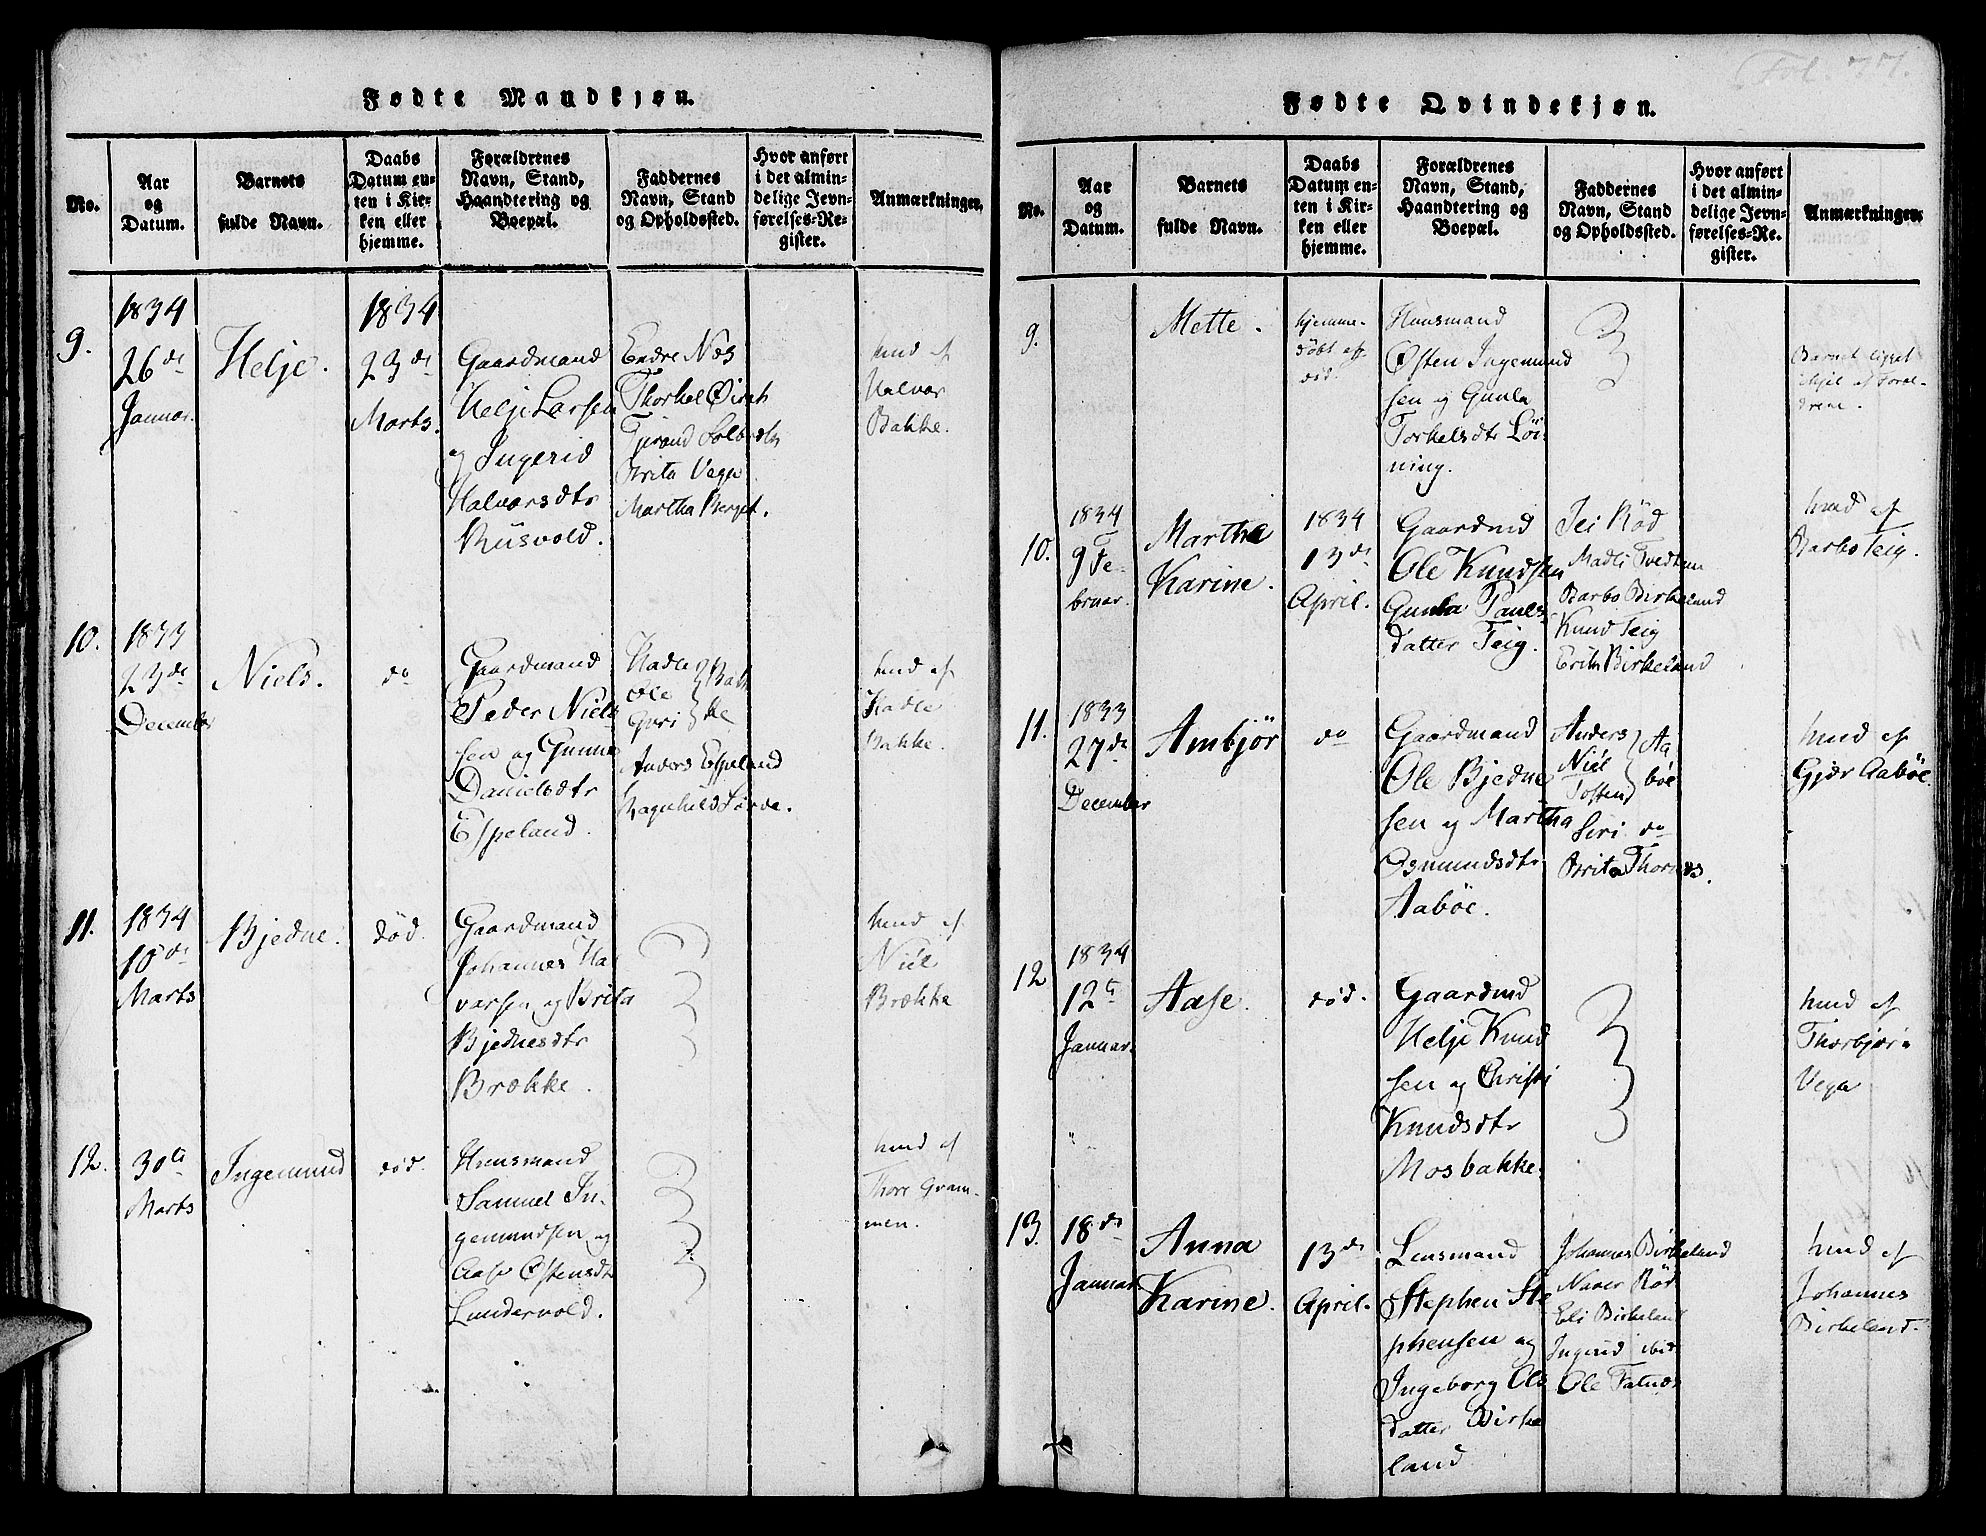 Fødte Mandkjøn.
No.
Aar
og
Datum.
Barnets
fulde Navn.
Daabs
Datum en-
ten i Kir-
ken eller
hjemme.
Forældrenes
Navn, Stand,
Haandtering og
Boepæl.
Faddernes
Navn, Stand
og Opholdssted.
Hvor anført
i det almin-
delige Jevn-
førelses-Re-
gister.
Anmærkninger.
9.
1834
26de
Januar.
Helje.
1834
23de
Marts.
Gaardmand
Helje Larsen
og Ingerid
Halvorsdtr
Riisvold.
Endre Nøs
Thorkel
Tjerand
Brita Vega
Martha Berget.
hmd af
Halvor
Bakke.
10.
1833
23de
December
Niels.
do
Gaardmand
Peder Niels
sen og Gunne
Danielsdtr
Espeland.
Hadle
Ole
Guri
Bak
ke
Anders Espeland
Ragnhild Førde.
hmd af
Hadle
Bakke.
11.
1834
10de
Marts
Bjedne.
død.
Gaardmand
Johannes Ha
varsen og Brita
Bjednesdtr
Brække.
hmd af
Niel
Brække
12.
30te
Marts
Ingemund
død.
Huusmand
Samuel In-
gemundsen og
Aase Østensdtr
Lundervold.
hmd af
Thore Gram-
men.
Fol. 77.
Fødte Qvindekjøn.
No.
Aar
og
Datum.
Barnets
fulde Navn.
Daabs
Datum en-
ten i Kir-
ken eller
hjemme.
Forældrenes
Navn, Stand,
Haandtering og
Boepæl.
Faddernes
Navn, Stand
og Opholdssted.
Hvor anført
i det almin-
delige Jevn-
førelses-Re-
gister.
Anmærkninger.
9.
Mette.
hjemme-
døbt og
død.
Huusmand
Østen Ingemund
sen og Gunla
Torkelsdtr Løi-
ning.
Barnet ligget
ihjel af Foræl-
drene.
10.
1834
9 Fe-
bruar.
Martha
Karine.
1834
13de
April.
Gaardmd
Ole Knudsen
Gunla Pauls
datter Teig.
Jei Rød
Madli Tvedten
Barbo Birkeland
Knud Teig
Erik Birkeland
hmd af
Barbo Teig.
11.
1833
27de
December
Ambjør
do
Gaardmand
Ole Bjedne
sen og Martha
Osmundsdtr
Aabøe.
Anders
Niel
Tosten
Aa
bøe
Siri do
Brita Thornes.
hmd af
Gjør Aabøe
12
1834
12te
Januar.
Aase.
død.
Gaardmd
Helje Knud
sen og Christi
Knudsdtr
Mosbakke.
hmd af
Thorbjør
Vega
13.
18de
Januar
Anna
Karine.
13de
April.
Lensmand
Stephen Ste
phensen og
Ingeborg Ole
datter Birke
land
Johannes Birkeland
Naaer Rød
Eli Birkeland
Ingerid ibid
Ole Fatnæs
hmd af
Johannes
Birkeland.